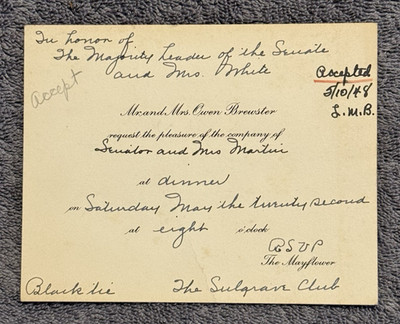 In honor of
The Majority Leader of the Senate
and Mrs. White
Accept
Accepted
5/10/48
L.M.B.
Mr. and Mrs. Owen Brewster
request the pleasure of the company of
Senator and Mrs Martin
at dinner
on Saturday May the twenty second
at eight o'clock
RSVP
The Mayflower
Black tie
The Sulgrave Club